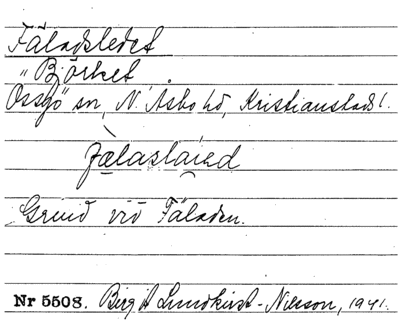 Fäladsledet
"Björket
Össjö sn, N. Åsbo hd, Kristianstads l.
fælaslαied
Grind vid Fäladen.
Nr 5508. Birgit Lundkvist-Nilsson, 1941.